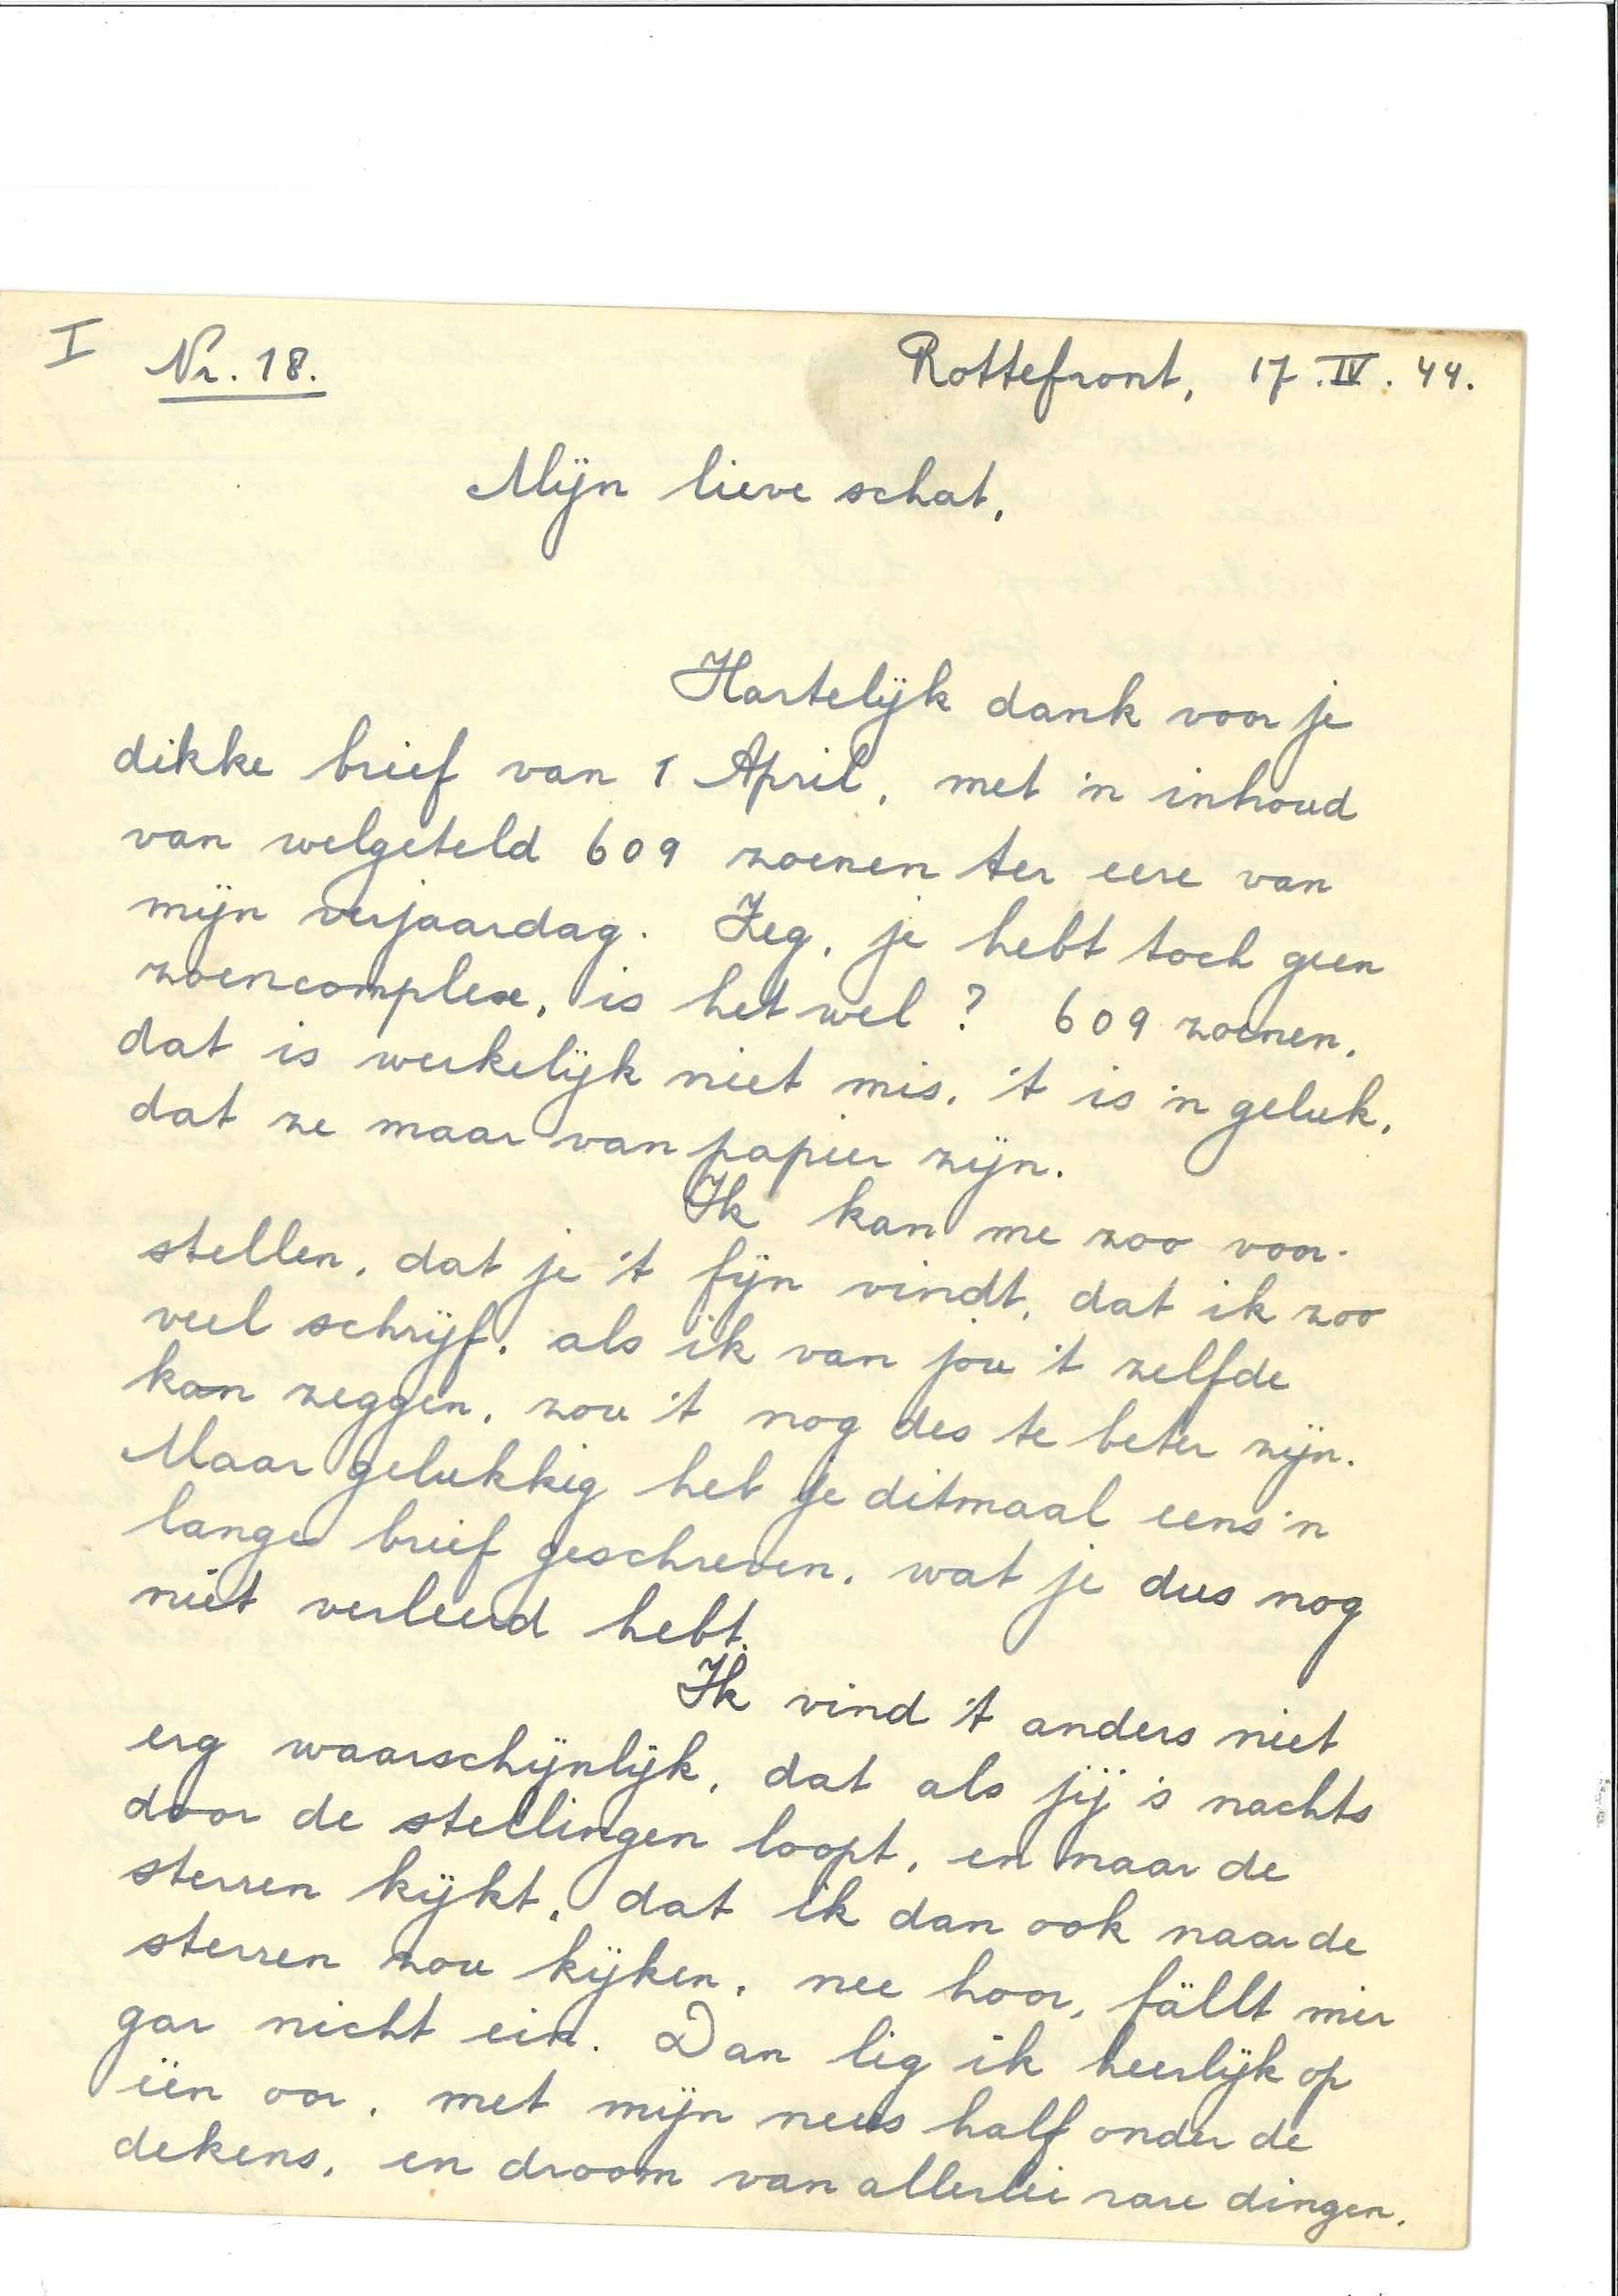 I Nr. 18. Rottefront, 17.IV.44.
Mijn lieve schat,
Hartelijk dank voor je
dikke brief van 1 April, met 'n inhoud
van welgeteld 609 zoenen ter eere van
mijn verjaardag. Zeg, je hebt toch geen
zoencomplex, is het wel? 609 zoenen,
dat is werkelijk niet mis, 't is 'n geluk,
dat ze maar van papier zijn.
Ik kan me zoo voor-
stellen, dat je 't fijn vindt, dat ik zoo
veel schrijf, als ik van jou 't zelfde
kan zeggen, zou 't nog des te beter zijn.
Maar gelukkig heb je ditmaal eens 'n
lange brief geschreven, wat je dus nog
niet verleerd hebt.
Ik vind 't anders niet
erg waarschijnlijk, dat als jij 's nachts
door de stellingen loopt, en naar de
sterren kijkt, dat ik dan ook naar de
sterren zou kijken, nee hoor, fällt mir
gar nicht ein. Dan lig ik heerlijk op
één oor, met mijn neus half onder de
dekens, en droom van allerlei rare dingen.